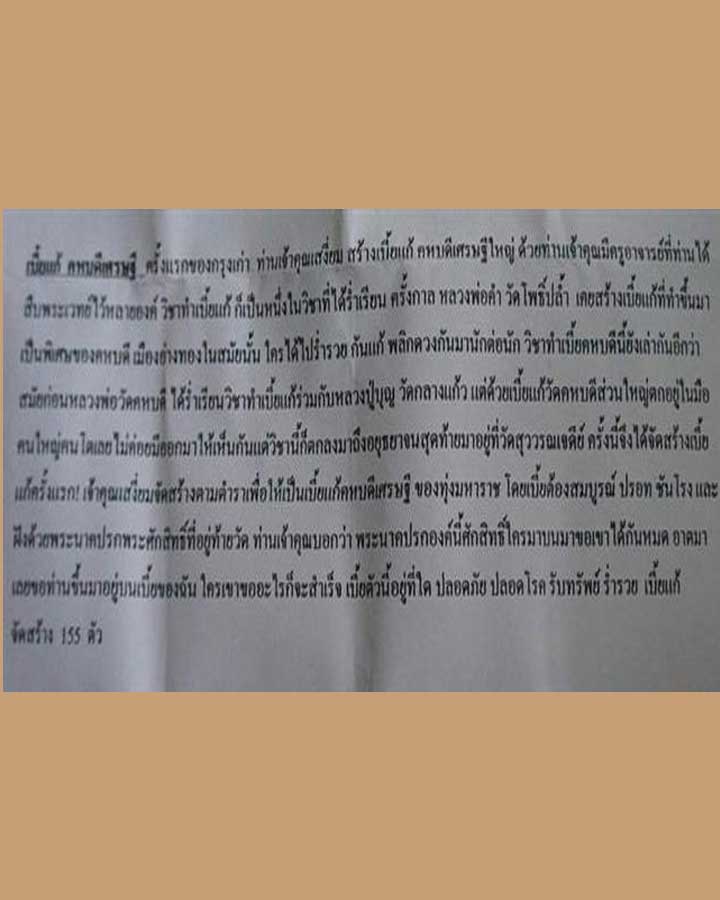 เบี้ยแก้ คหบดีเศรษฐี ครั้งแรกของกรุงเก่า ท่านเจ้าคุณเสงี่ยม สร้างเบี้ยแก้ คหบดีเศรษฐีใหญ่ ด้วยท่านเจ้าคุณมีครูอาจารย์ที่ท่านได้
สืบพระเวทย์ไว้หลายองค์ วิชาทำเบี้ยแก้ ก็เป็นหนึ่งในวิชาที่ได้ร่ำเรียน ครั้งกาล หลวงพ่อคำ วัดโพธิ์ปล้ำ เคยสร้างเบี้ยแก้ที่ทำขึ้นมา
เป็นพิเศษของคหบดี เมืองอ่างทองในสมัยนั้น ใครได้ไปร่ำรวย กันแก้ พลิกดวงกันมานักต่อนัก วิชาทำเบี้ยคหบดีนี้ยังเล่ากันอีกว่า
สมัยก่อนหลวงพ่อวัดคหบดี ได้ร่ำเรียนวิชาทำเบี้ยแก้ร่วมกับหลวงปู่บุญ วัดกลางแก้ว แต่ด้วยเบี้ยแก้วัดคหบดีส่วนใหญ่ตกอยู่ในมือ
คนใหญ่คนโตเลย ไม่ค่อยมีออกมาให้เห็นกันแต่วิชานี้ก็ตกลงมาถึงอยุธยาจนสุดท้ายมาอยู่ที่วัดสุวรรณเจดีย์ ครั้งนี้จึงได้จัดสร้างเบี้ย
แก้ครั้งแรก! เจ้าคุณเสงี่ยมจัดสร้างตามตำราเพื่อให้เป็นเบี้ยแก้คหบดีเศรษฐี ของทุ่งมหาราช โดยเบี้ยต้องสมบูรณ์ ปรอท ชันโรง และ
ฝังด้วยพระนาคปรกพระศักสิทธิ์ที่อยู่ท้ายวัด ท่านเจ้าคุณบอกว่า พระนาคปรกองค์นี้ศักสิทธิ์ใครมาบนมาขอเขาได้กันหมด อาตมา
เลยขอท่านขึ้นมาอยู่บนเบี้ยของฉัน ใครเขาขออะไรก็จะสำเร็จ เบี้ยตัวนี้อยู่ที่ใด ปลอดภัย ปลอดโรค รับทรัพย์ ร่ำรวย เบี้ยแก้
จัดสร้าง 155 ตัว